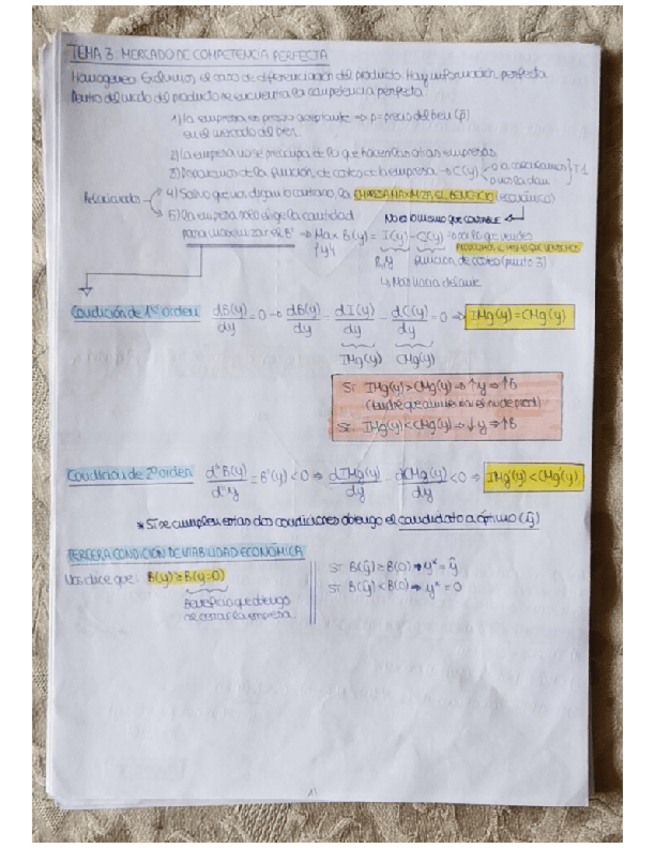 TEMA 3: MERCADO DE COMPETENCIA PERFECTA
Homogéneo. Excluimos el caso de diferenciación del producto. Hay información perfecta.
Dentro del mcdo del producto se encuentra la competencia perfecta.
1) La empresa es precio aceptante ⇒ p = precio del bien (p̄)
en el mercado del bien.
2) La empresa no se preocupa de lo que hacen las otras empresas.
3) de la función de costes de la empresa → C(y) o la calculamos } T1
o nos la dan
Relacionados
4) Salvo que nos digan lo contrario, la EMPRESA MAXIMIZA EL BENEFICIO (económico)
5) La empresa solo elige la cantidad
NO ES LO MISMO QUE CONTABLE
para maximizar el B⁰ ⇒ Max B(y) = I(y) - C(y) lo que vendes
{y}
PRODUCIMOS LO MISMO QUE VENDEMOS
P·y función de costes (punto 3)
↳ Más hacia delante
Condición de 1er orden dB(y)/dy = 0 → dB(y)/dy - dI(y)/dy - dC(y)/dy = 0 ⇒ IMg(y) = CMg(y)
IMg(y) CMg(y)
Si IMg(y) > CMg(y) ⇒ ↑y ⇒ ↑B
(tendré que aumentar mi nv de prod)
Si IMg(y) < CMg(y) ⇒ ↓y ⇒ ↑B
Condición de 2º orden d²B(y)/d²y = B''(y) < 0 ⇒ dIMg(y)/dy - dCMg(y)/dy < 0 ⇒ IMg'(y) < CMg'(y)
* Si se cumplen estas dos condiciones obtengo el candidato a óptimo (ỹ)
TERCERA CONDICIÓN DE VIABILIDAD ECONÓMICA
Nos dice que: B(y) ≥ B(y=0)
Si B(ỹ) ≥ B(0) ⇒ y* = ỹ
Si B(ỹ) < B(0) ⇒ y* = 0
Beneficio que obtengo
de cerrar la empresa.